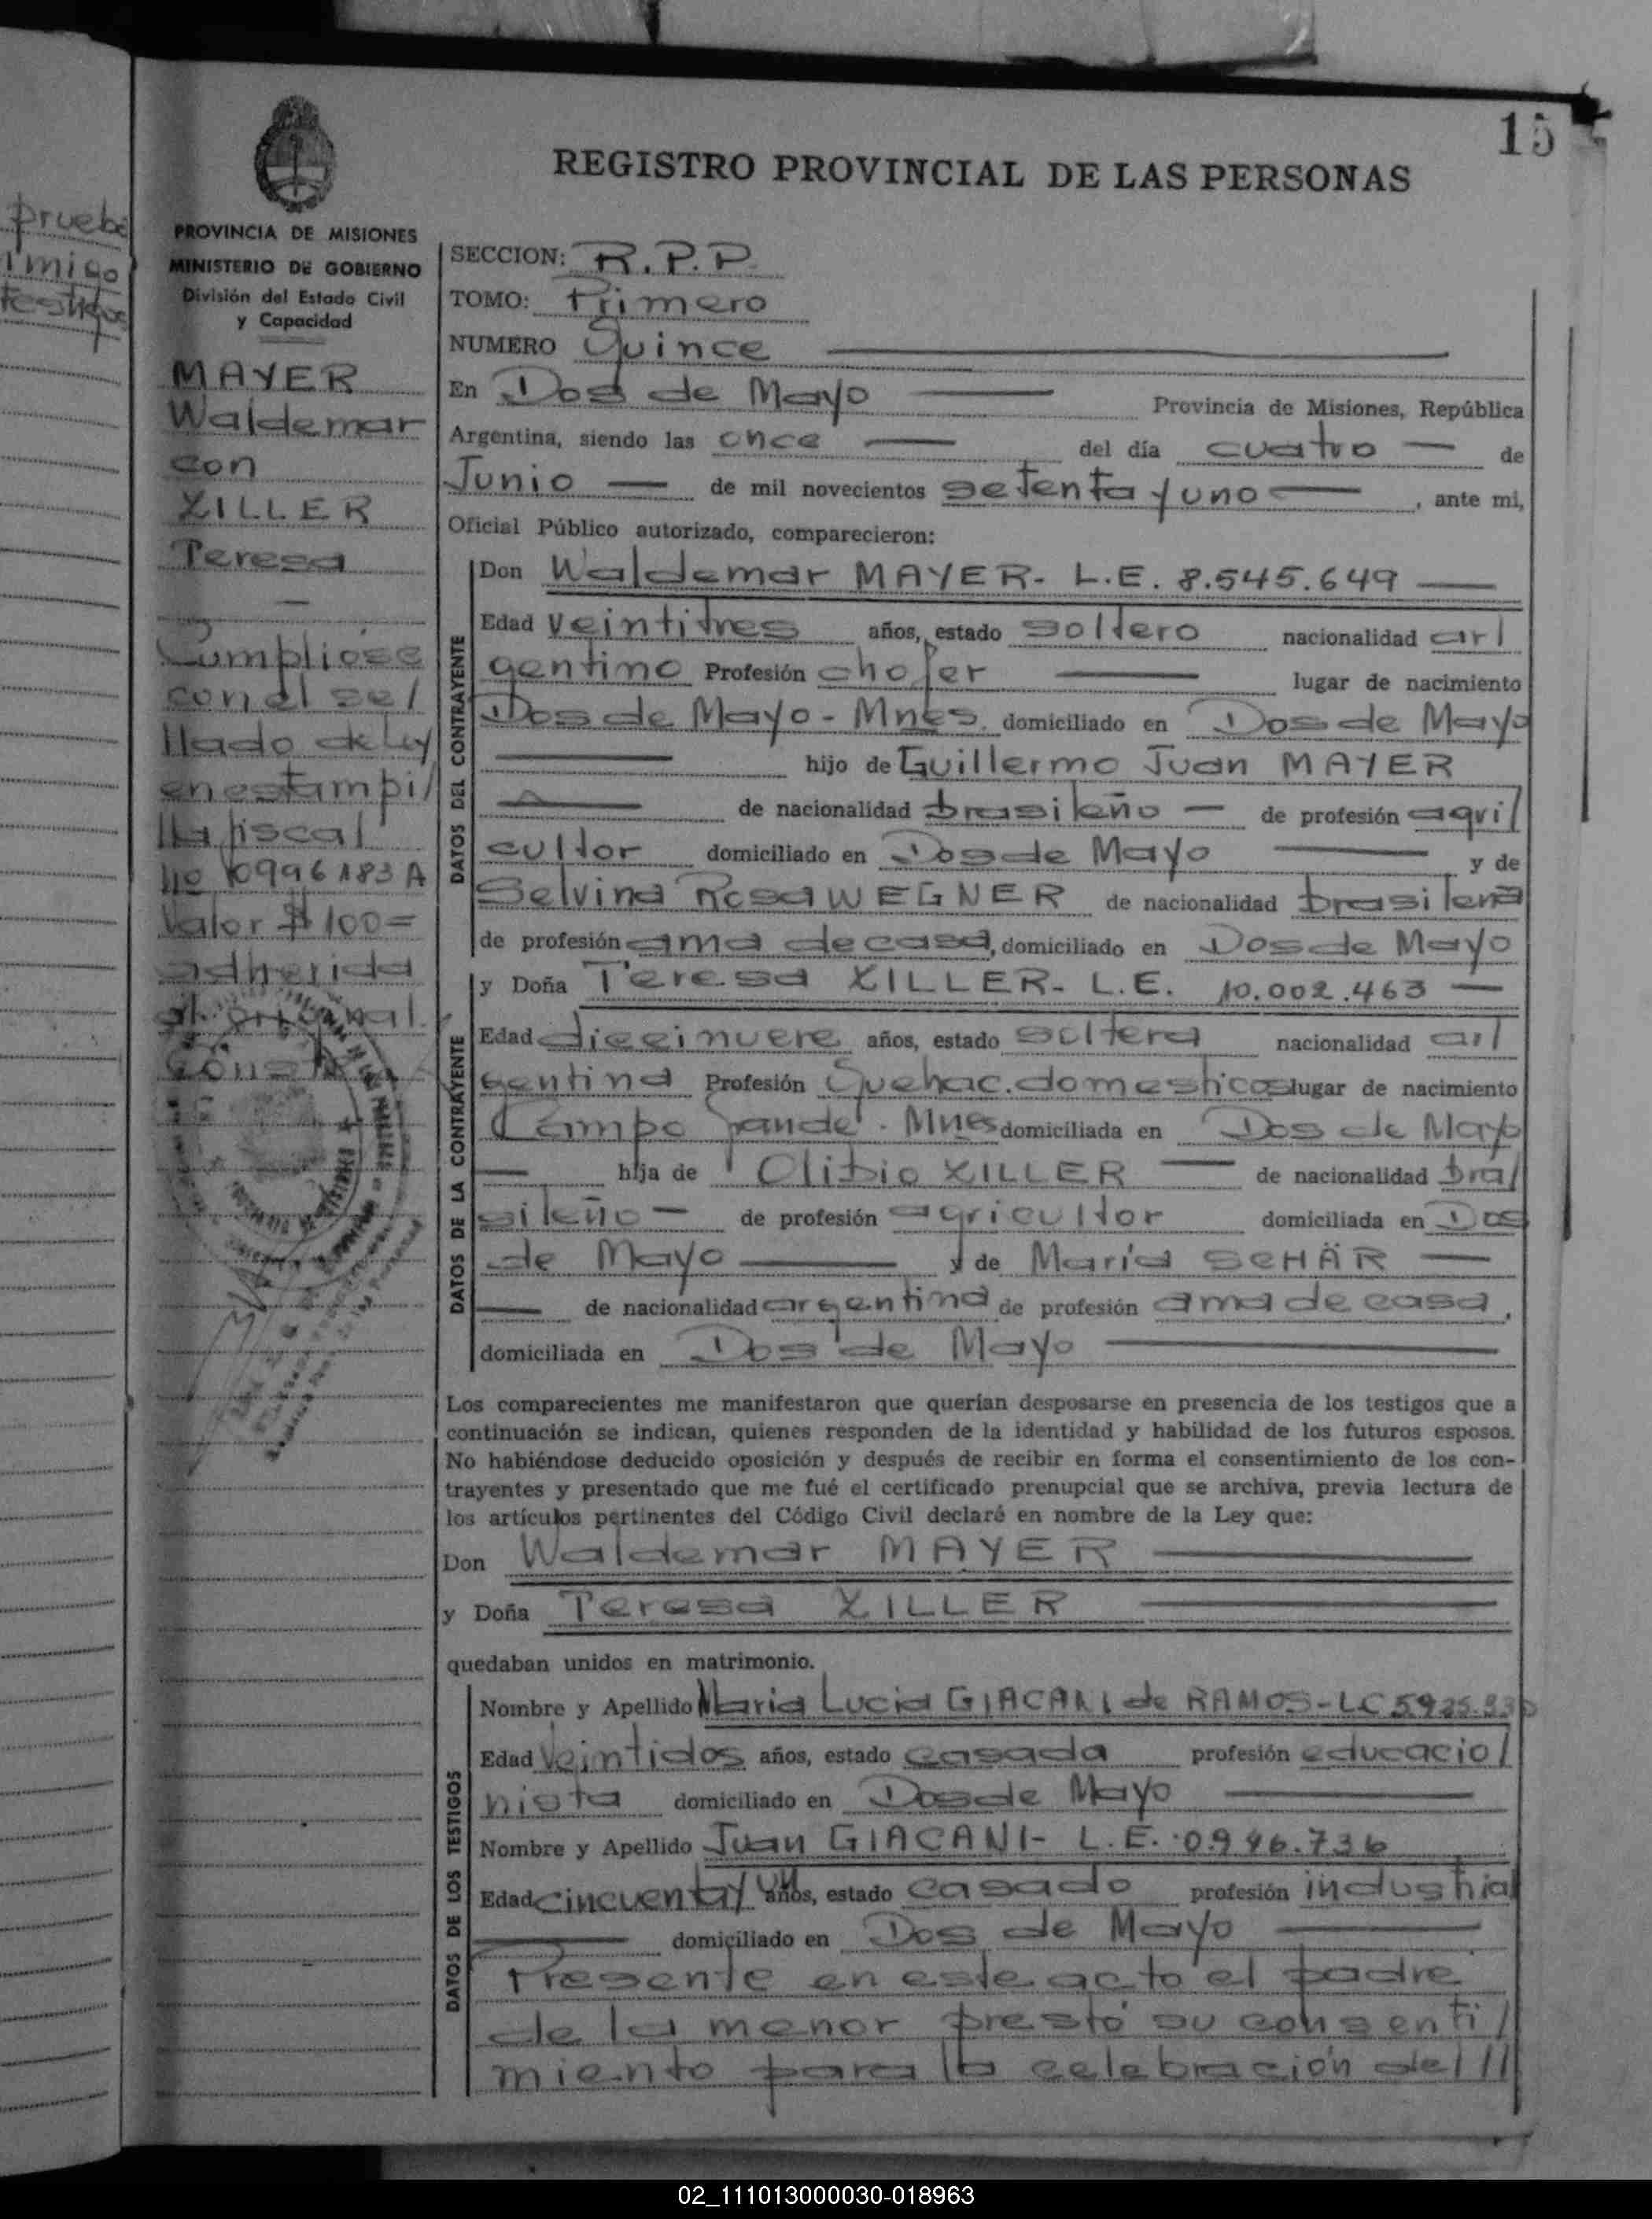 15
REGISTRO PROVINCIAL DE LAS PERSONAS
prueba
testigos
PROVINCIA DE MISIONES
MINISTERIO DE GOBIERNO
División del Estado Civil
y Capacidad
MAYER
Waldemar
con
XILLER
Teresa
Cumpliose
con el se/
llado de Ley
en estampi/
lla fiscal
No 0996183 A
Valor $ 100=
adherida
al original.
Const
SECCION: R.P.P.
TOMO: Primero
NUMERO Quince
En Dos de Mayo Provincia de Misiones, República
Argentina, siendo las once del día cuatro de
Junio de mil novecientos setenta y uno, ante mi,
Oficial Público autorizado, comparecieron:
DATOS DEL CONTRAYENTE
Don Waldemar MAYER- L.E. 8.545.649
Edad veintitres años, estado soltero nacionalidad ar/
gentino Profesión chofer lugar de nacimiento
Dos de Mayo - Mnes. domiciliado en Dos de Mayo
hijo de Guillermo Juan MAYER
de nacionalidad brasileño de profesión agri/
cultor domiciliado en Dos de Mayo y de
Selvina Rosa WEGNER de nacionalidad brasilena
de profesión ama de casa, domiciliado en Dos de Mayo
DATOS DE LA CONTRAYENTE
y Doña Teresa XILLER- L.E. 10.002.463
Edad diecinueve años, estado soltera nacionalidad ar/
gentina Profesión Quehac. domesticos lugar de nacimiento
Campo Grande - Mnes domiciliada en Dos de Mayo
hija de Olibio XILLER de nacionalidad bra/
sileño de profesión agricultor domiciliada en Dos
de Mayo y de María SCHÄR
de nacionalidad argentina de profesión ama de casa,
domiciliada en Dos de Mayo
Los comparecientes me manifestaron que querían desposarse en presencia de los testigos que a
continuación se indican, quienes responden de la identidad y habilidad de los futuros esposos.
No habiéndose deducido oposición y después de recibir en forma el consentimiento de los con-
trayentes y presentado que me fué el certificado prenupcial que se archiva, previa lectura de
los artículos pertinentes del Código Civil declaré en nombre de la Ley que:
Don Waldemar MAYER
y Doña Teresa XILLER
quedaban unidos en matrimonio.
DATOS DE LOS TESTIGOS
Nombre y Apellido Maria Lucia GIACANI de RAMOS-LC
Edad veintidos años, estado casada profesión educacio/
nista domiciliado en Dos de Mayo
Nombre y Apellido Juan GIACANI- L.E. 0.946.736
Edad cincuenta y un años, estado casado profesión industrial
domiciliado en Dos de Mayo
Presente en este acto el padre
de la menor prestó su consenti/
miento para la celebración del//
02_111013000030-018963